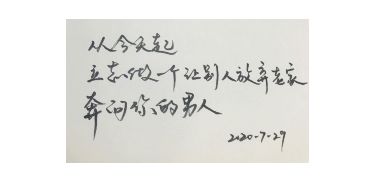 从今天起
立志做一个让别人放弃老家
奔向你的男人
2020-7-29